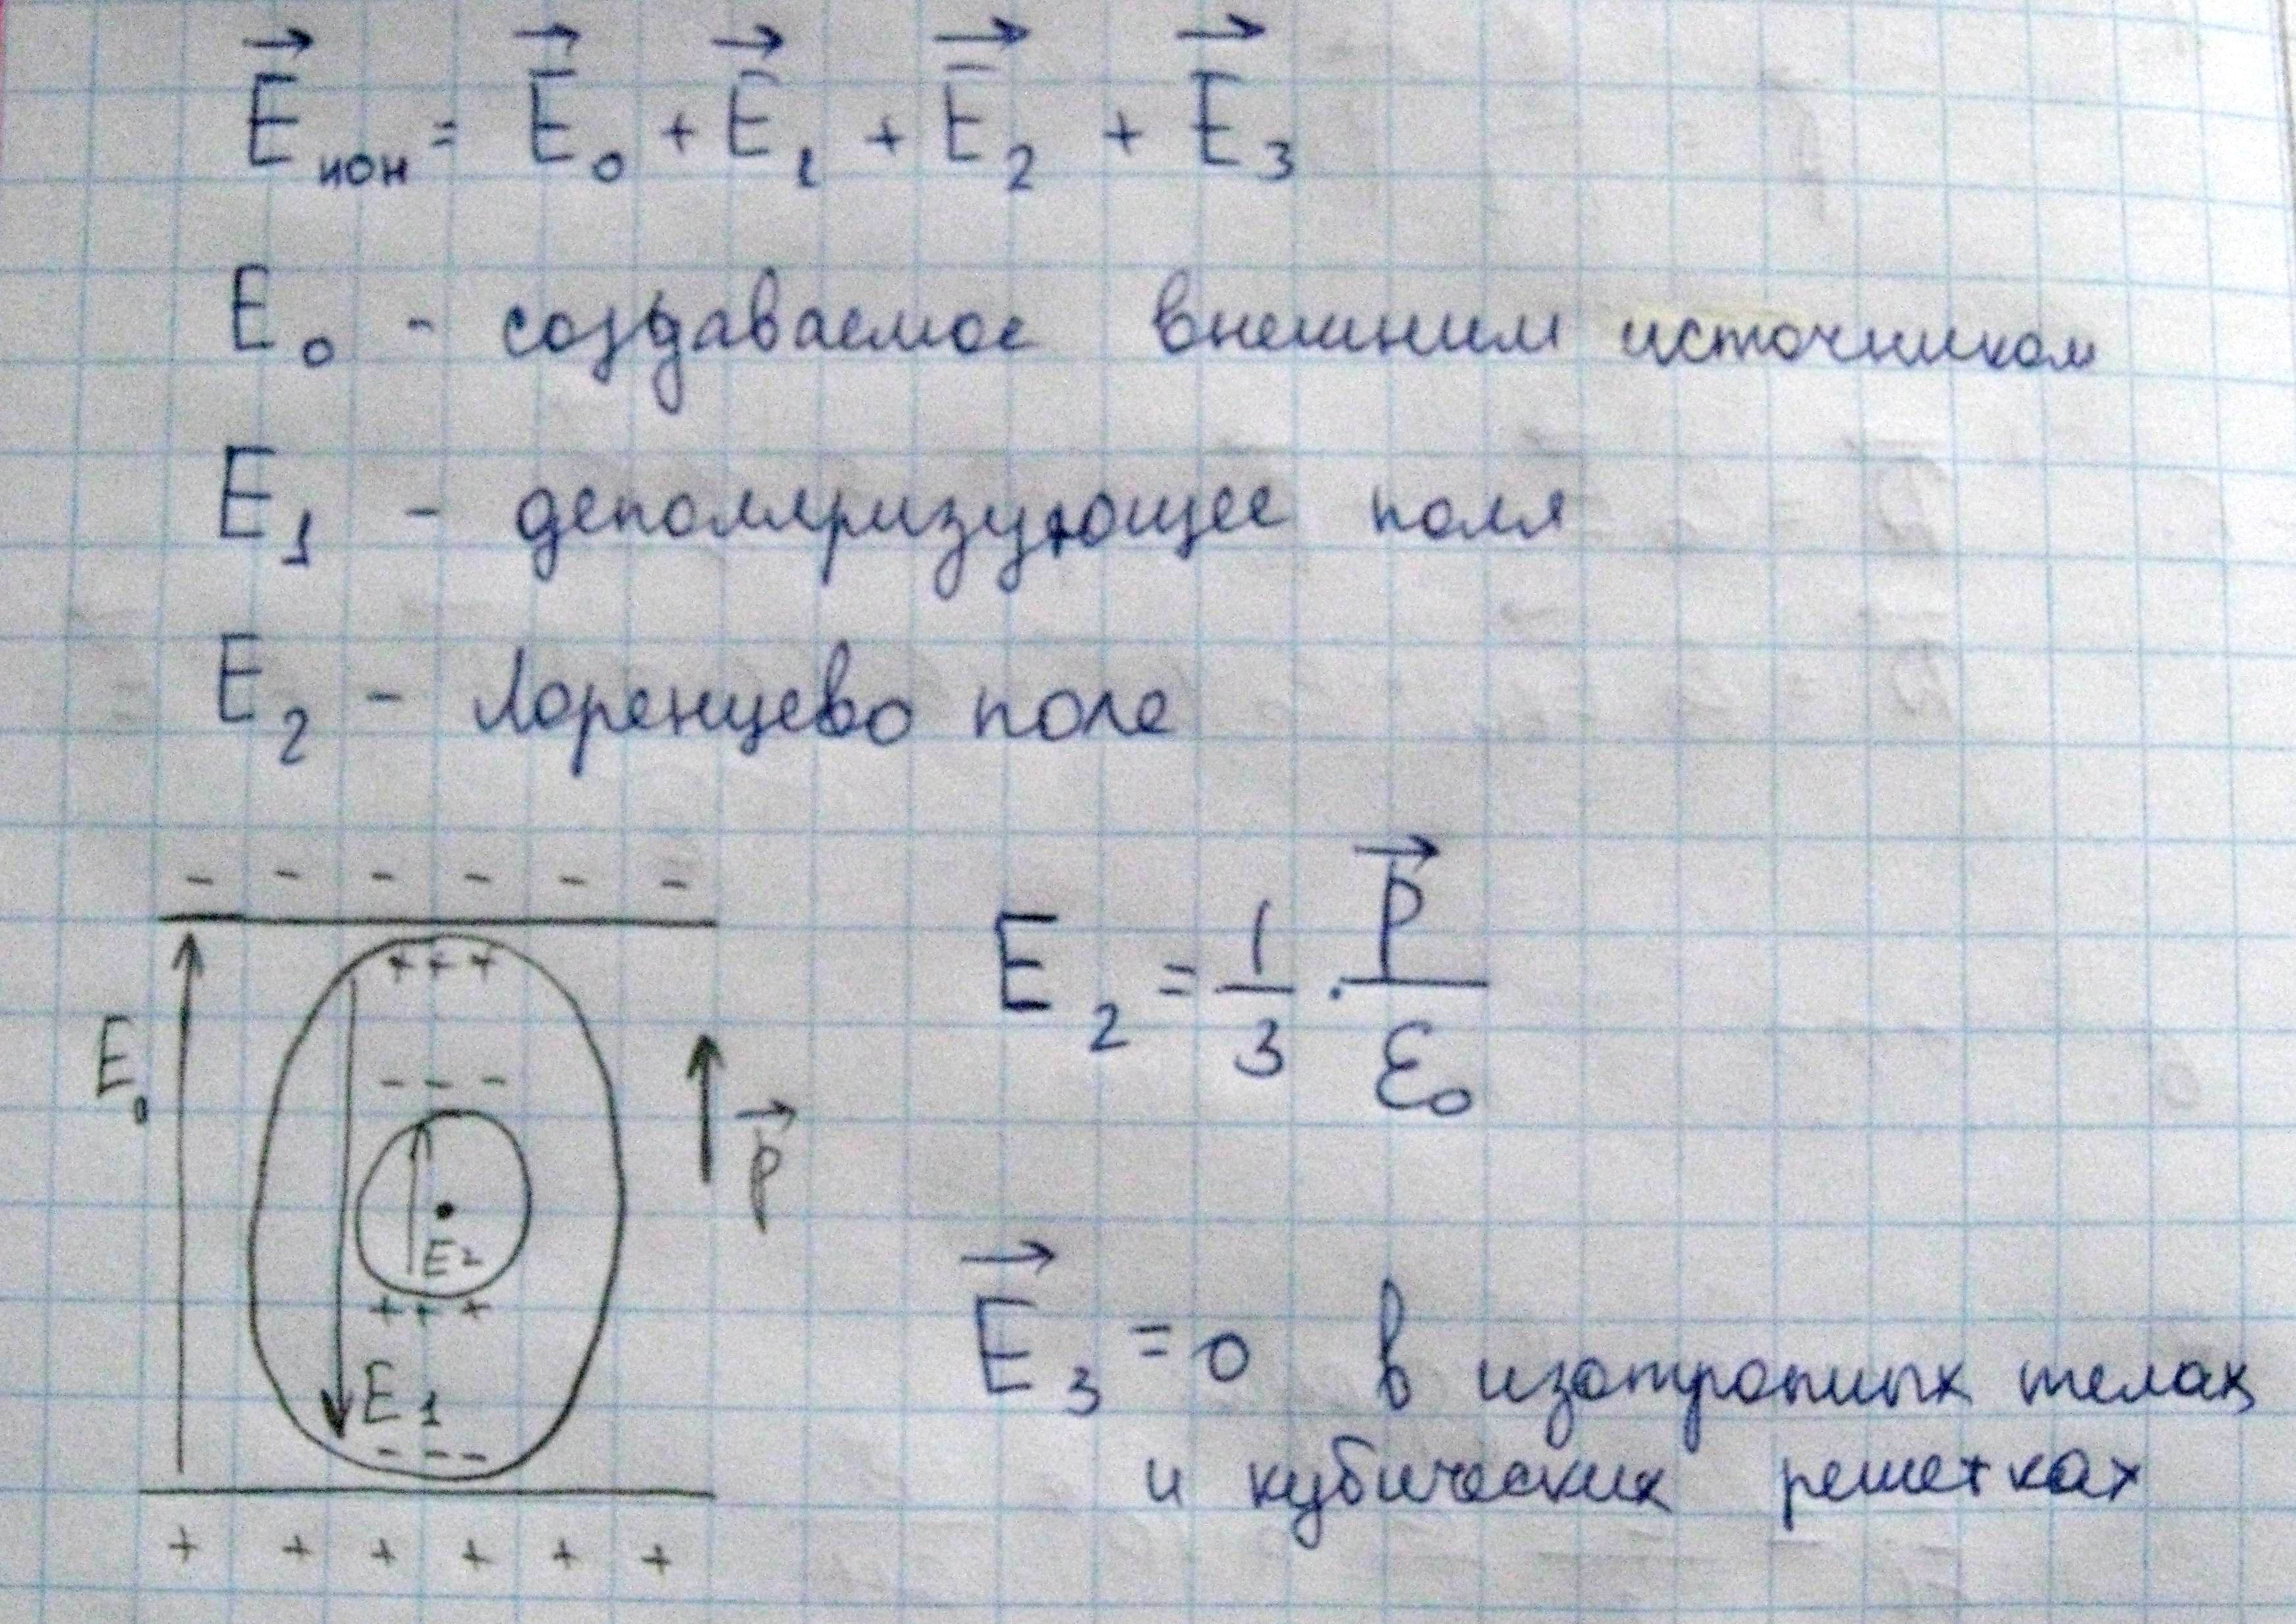 E⃗ион = E⃗₀ + E⃗₁ + E⃗₂ + E⃗₃
E₀ - создаваемое внешним источником
E₁ - деполяризующее поля
E₂ - Лоренцево поле
- - - - - -
+ + +
E₀
- - -
P⃗
E₂
+ + +
E₁
- - -
+ + + + + +
E₂ = 1/3 · P⃗/ε₀
E⃗₃ = 0 в изотропных телах
и кубических решетках